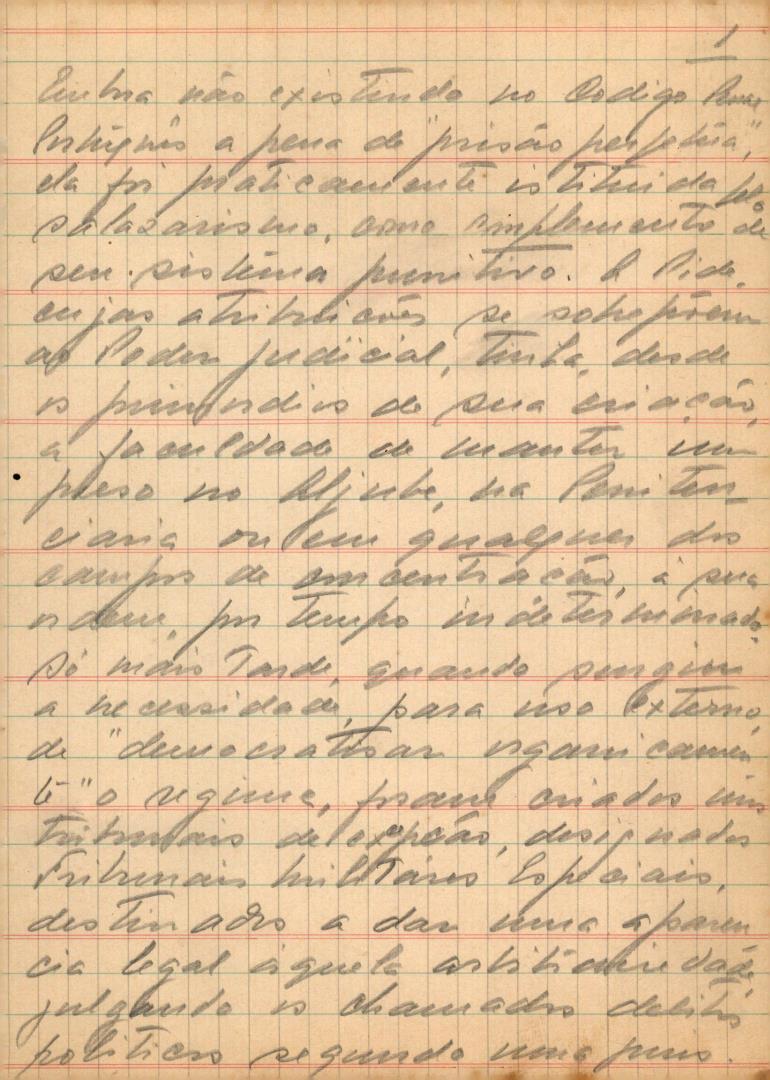 1
Embora não existindo no Codigo Penal
Português a pena de "prisão perpétua",
ela foi praticamente istituida pelo
salazarismo, como complemento de
seu sistêma punitivo. A Pide,
cujas atribuicões se sobrepõem
ao Poder judicial, tinha, desde
os primordios de sua criação,
a faculdade de manter um
preso no Aljube, na Peniten_
ciaria ou em qualquer dos
campos de concentração, á sua
ordem, por tempo indeterminado.
Só mais tarde, quando surgiu
a necessidade, para uso externo,
de "democratisar organicamen
te" o regime, foram criados uns
tribunais de excpção, designados
Tribunais Militares Especiais,
destinados a dar uma aparen
cia legal áquela arbitrariedade,
julgando os chamados delitos
politicos segundo uma juris.